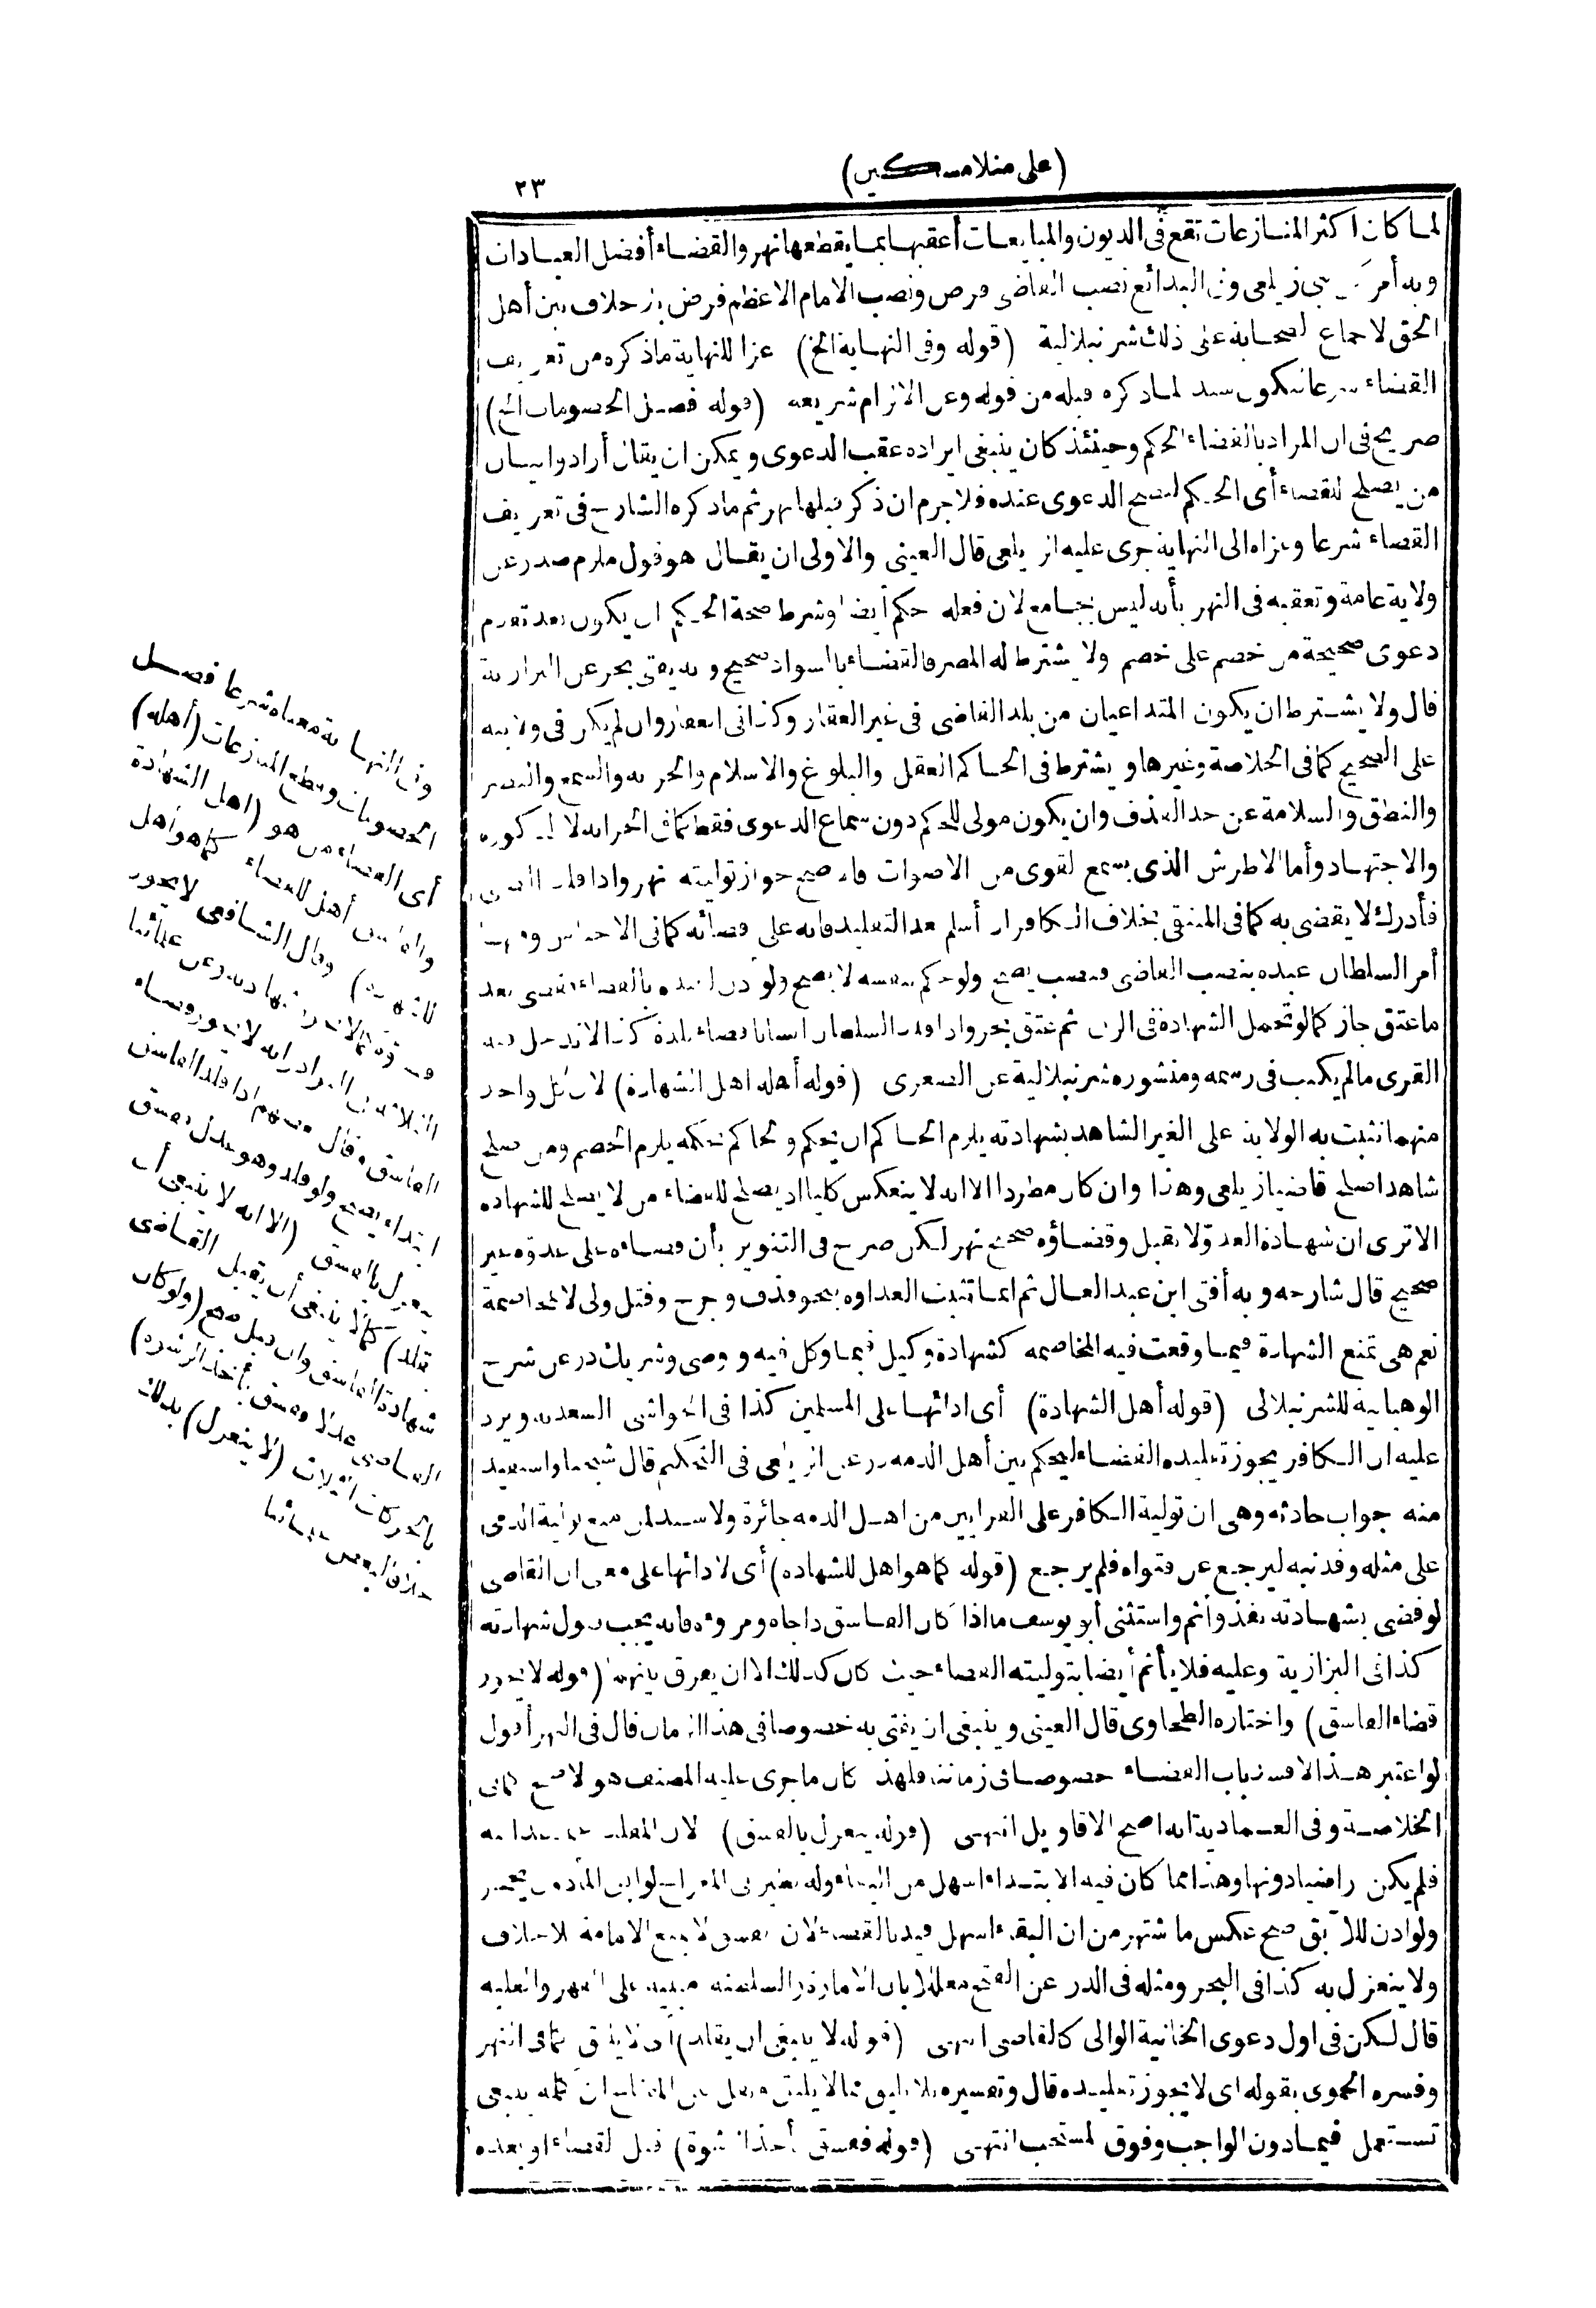 (على منلا مسكين)
٢٣
لما كان أكثر المنازعات تقع فى الديون والمبايعات أعقبها بما يقطعها نهر والقضاء أفضل العبادات
وبه أمر زيلعى وفى البدائع نصب القاضى فرض ونصب الامام الاعظم فرض بلا خلاف بين أهل
الحق لاجماع الصحابة على ذلك شرنبلالية (قوله وفى النهاية الخ) عزا للنهاية ماذكره من تعريف
القضاء شرعا ليكون سندا لما ذكره قبله من قوله وعن الالزام شريعة (قوله فصل الخصومات الخ)
صريح فى ان المراد بالقضاء الحكم وحينئذ كان ينبغى ايراده عقب الدعوى ويمكن ان يقال أرادوا بيان
من يصلح للقضاء أى الحكم لتصح الدعوى عنده فلا جرم ان ذكر قبلها نهر ثم ماذكره الشارح فى تعريف
القضاء شرعا وعزاه الى النهاية جرى عليه الزيلعى قال العينى والاولى ان يقال هو قول ملزم صدر عن
ولاية عامة وتعقبه فى النهر بأنه ليس بجامع لان فعله حكم أيضا وشرط صحة الحكم ان يكون بعد تقدم
دعوى صحيحة من خصم على خصم ولا يشترط له المصر فالقضاء بالسواد صحيح وبه يفتى بحر عن البزازية
قال ولا يشترط ان يكون المتداعيان من بلد القاضى فى غير العقار وكذا فى العقار وان لم يكن فى ولايته
على الصحيح كما فى الخلاصة وغيرها ويشترط فى الحاكم العقل والبلوغ والاسلام والحرية والسمع والبصر
والنطق والسلامة عن حد القذف وان يكون مولى للحكم دون سماع الدعوى فقط كما فى الخزانة لا الذكورة
والاجتهاد وأما الاطرش الذى يسمع القوى من الاصوات فالاصح جواز توليته نهر واذا قلد الصبى
فأدرك لا يقضى به كما فى المنتقى بخلاف الكافر اذا أسلم بعد التقليد فانه على قضائه كما فى الاجناس
أمر السلطان عبده بنصب القاضى فنصب يصح ولو حكم بنفسه لا يصح ولو اذن لعبده بالقضاء فقضى بعد
ما عتق جاز كما لو تحمل الشهادة فى الرق ثم عتق بحر واذا قلد السلطان انسانا قضاء بلدة كذا لا تدخل فيه
القرى مالم يكتب فى رسمه ومنشوره شرنبلالية عن الصغرى (قوله أهله أهل الشهادة) لان كل واحد
منهما تثبت به الولاية على الغير الشاهد بشهادته يلزم الحاكم ان يحكم والحاكم بحكمه يلزم الخصم ومن صلح
شاهدا صلح قاضيا زيلعى وهذا وان كان مطردا الا انه لا ينعكس كليا اذ يصلح للقضاء من لا يصلح للشهادة
الا ترى ان شهادة العدو لا تقبل وقضاؤه صحيح نهر لكن صرح فى التنوير بأن قضاءه على عدوه غير
صحيح قال شارحه وبه أفتى ابن عبد العال ثم انما تثبت العداوة بنحو قذف وجرح وقتل ولى لا بمخاصمة
نعم هى تمنع الشهادة فيما وقعت فيه المخاصمة كشهادة وكيل فيما وكل فيه ووصى وشريك در عن شرح
الوهبانية للشرنبلالى (قوله أهل الشهادة) أى ادائها على المسلمين كذا فى الحواشى السعدية ويرد
عليه ان الكافر يجوز تقليده القضاء ليحكم بين أهل الذمة در عن الزيلعى فى التحكيم قال شيخنا واستفيد
منه جواب حادثة وهى ان تولية الكافر على القرايين من أهل الذمة جائزة ولا سيد لمن منع تولية الذمى
على مثله وقد نبه ليرجع عن فتواه فلم يرجع (قوله كما هو اهل للشهادة) أى لادائها على معنى ان القاضى
لو قضى بشهادته نفذ وأثم واستثنى أبو يوسف ما اذا كان الفاسق ذا جاه ومروءة فانه يجب قبول شهادته
كذا فى البزازية وعليه فلا يأثم أيضا بتوليته القضاء حيث كان كذلك الا ان يفرق بينهما (قوله لا يجوز
قضاء الفاسق) واختاره الطحاوى قال العينى وينبغى ان يفتى به خصوصا فى هذا الزمان قال فى النهر أقول
لو اعتبر هذا لانسد باب القضاء خصوصا فى زماننا فلهذا كان ما جرى عليه المصنف هو الاصح كما فى
الخلاصة وفى العمادية انه اصح الاقاويل انتهى (قوله ينعزل بالفسق) لان المقلد
فلم يكن راضيا دونها وهذا مما كان فيه الابتداء اسهل من البقاء
ولو اذن للآبق صح عكس ما اشتهر من ان البقاء اسهل قيد بالقضاء لان
ولا ينعزل به كذا فى البحر ومثله فى الدر عن الفتح معللا بان الامارة والسلطنة مبنية على القهر والغلبة
قال لكن فى اول دعوى الخانية الوالى كالقاضى انتهى (قوله لا ينبغى ان يقلد) أى لا يليق كما فى النهر
وفسره الحموى بقوله اى لا يجوز تقليده قال وتفسيره بلا يليق مما لا يليق
تستعمل فيما دون الواجب وفوق المستحب انتهى (قوله ففسق باخذ الرشوة) قبل القضاء او بعده
وفى النهاية معناه شرعا فصل
الخصومات وقطع المنازعات (أهله)
أى القضاء من هو (اهل الشهادة
والفاسق أهل للقضاء كما هو اهل
للشهادة) وقال الشافعى لا يجوز
الثلاثة فى النوادر انه لا يجوز قضاء
الفاسق وقال بعضهم اذا قلد الفاسق
ابتداء يصح ولو قلد وهو عدل ففسق
ينعزل بالفسق (الا انه لا ينبغى أن
يقلد) كما لا ينبغى أن يقبل القاضى
شهادة الفاسق وان قبل صح (ولو كان
القاضى عدلا ففسق بأخذ الرشوة)
(لا ينعزل) بذلك